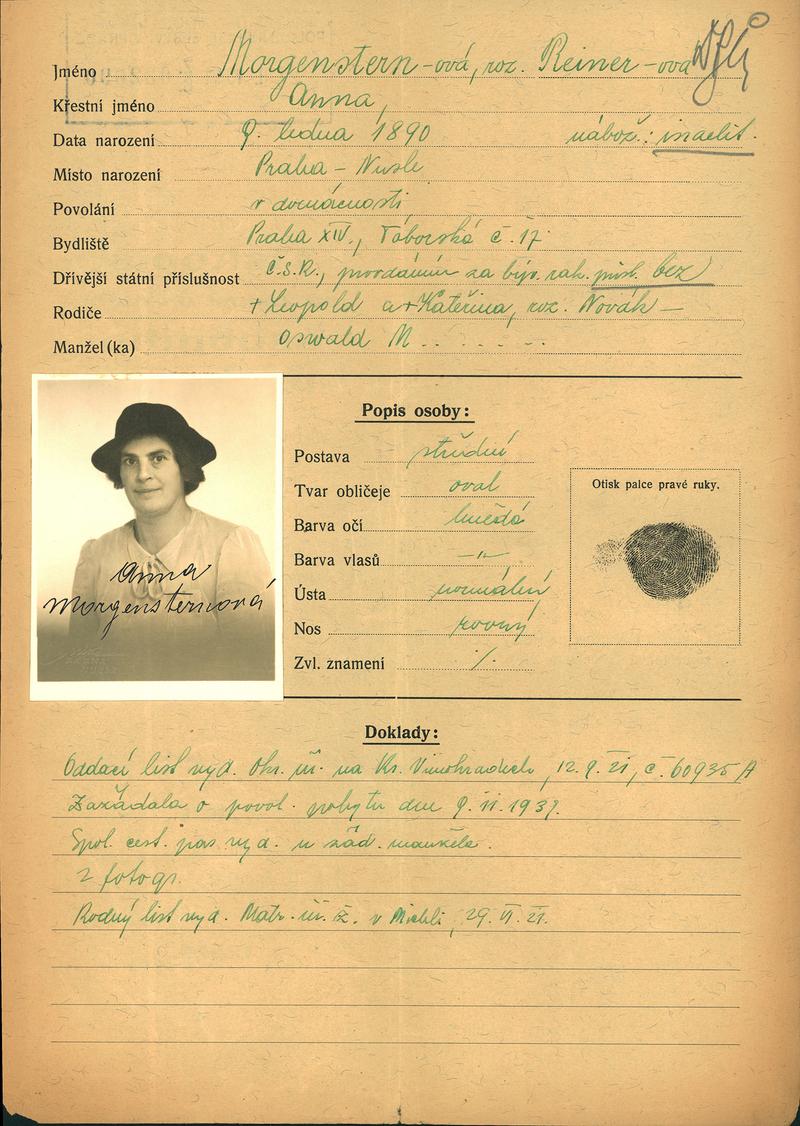 Jméno Morgenstern-ová, roz. Reiner-ová
Křestní jméno Anna,
Data narození 9. ledna 1890 nábož.: israelit.
Místo narození Praha – Nusle
Povolání v domácnosti
Bydliště Praha XIV., Táborská č. 17
Dřívější státní příslušnost Č.S.R., provdáním za býv. rak. přísl. bez
Rodiče + Leopold a + Kateřina, roz. Novák —
Manžel (ka) Oswald M . . . . . .
Popis osoby:
Postava střední
Tvar obličeje oval
Otisk palce pravé ruky.
Barva očí hnědá
Barva vlasů —„—
Ústa normální
Nos rovný
Zvl. znamení ./.
Anna
Morgensternová
Doklady:
Oddací list vyd. Okr. úř. na Kr. Vinohradech, 12. 9. 21, č. 60935 A
Zažádala o povol. pobytu dne 9. 11. 1939.
Spol. cest. pas vyd. u žád. manžela.
2 fotogr.
Rodný list vyd. Matr. úř. ž. v Michli, 29. VI. 21.